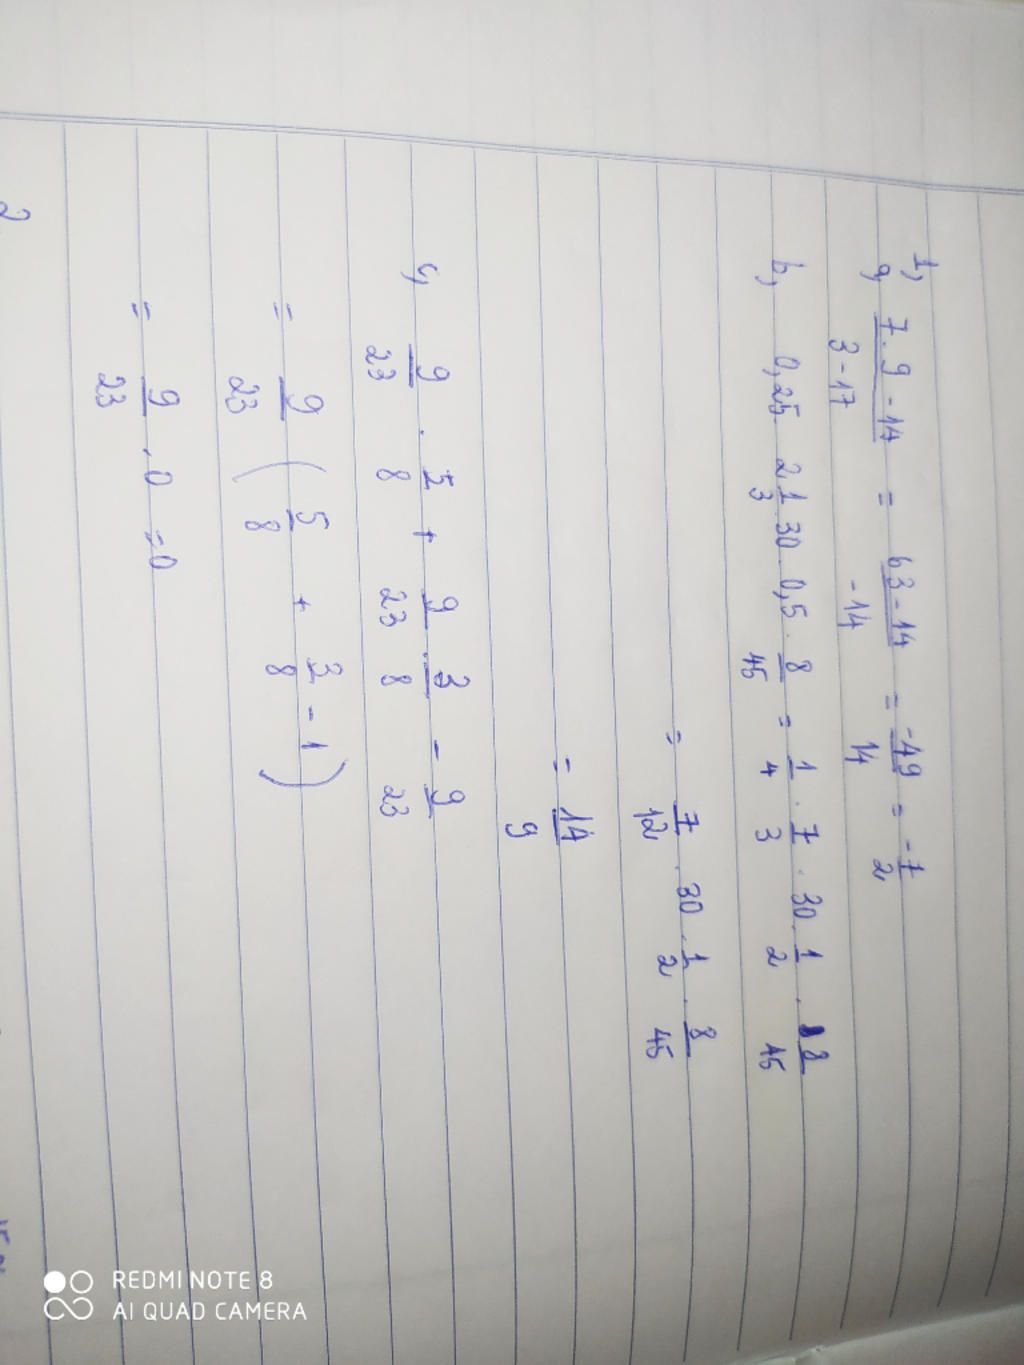 1,
a, 7.9-14/3-17 = 63-14/-14 = -49/14 = -7/2
b, 0,25 2 1/3 . 30 . 0,5 . 8/45 = 1/4 . 7/3 . 30 . 1/2 . 8/45
= 7/12 . 30 . 1/2 . 8/45
= 14/9
c, 9/23 . 5/8 + 9/23 . 3/8 - 9/23
= 9/23 ( 5/8 + 3/8 - 1 )
= 9/23 . 0 = 0
2
REDMI NOTE 8
AI QUAD CAMERA